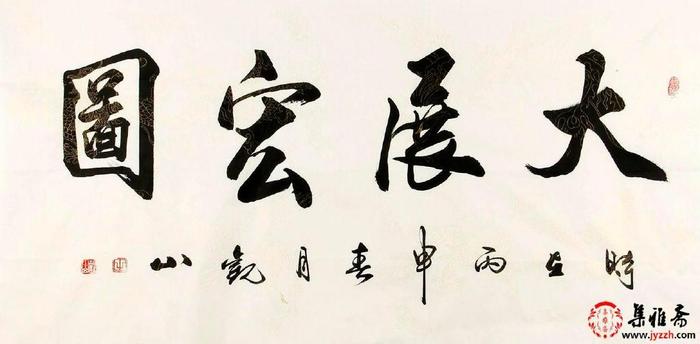 大展宏圖
時在丙申春月觀山
集雅斋
www.jyzzh.com